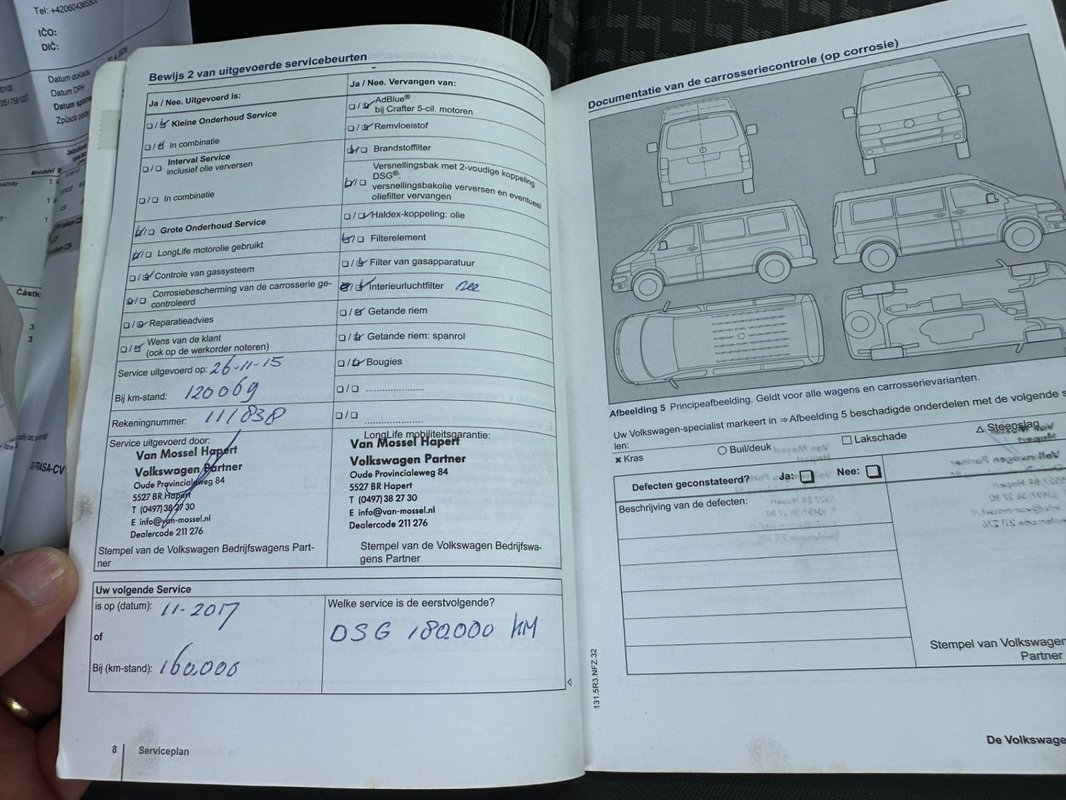 Tel: +42060436580
IČO:
DIČ:
Datum dokladu
Datum DPH
Částk
Bewijs 2 van uitgevoerde servicebeurten
Ja / Nee. Uitgevoerd is:
Kleine Onderhoud Service
In combinatie
Interval Service
inclusief olie verversen
In combinatie
Grote Onderhoud Service
LongLife motorolie gebruikt
Controle van gassysteem
Corrosiebescherming van de carrosserie ge-
controleerd
Reparatieadvies
Wens van de klant
(ook op de werkorder noteren)
Service uitgevoerd op: 26-11-15
Bij km-stand: 120069
Rekeningnummer: 111838
Service uitgevoerd door:
Van Mossel Hapert
Volkswagen Partner
Oude Provincialeweg 84
5527 BR Hapert
T (0497) 38 27 30
E info@van-mossel.nl
Dealercode 211 276
Stempel van de Volkswagen Bedrijfswagens Part-
ner
Ja / Nee. Vervangen van:
AdBlue®
bij Crafter 5-cil. motoren
Remvloeistof
Brandstoffilter
Versnellingsbak met 2-voudige koppeling
DSG®:
versnellingsbakolie verversen en eventueel
oliefilter vervangen
Haldex-koppeling: olie
Filterelement
Filter van gasapparatuur
Interieurluchtfilter nee
Getande riem
Getande riem: spanrol
Bougies
LongLife mobiliteitsgarantie:
Van Mossel Hapert
Volkswagen Partner
Oude Provincialeweg 84
5527 BR Hapert
T (0497) 38 27 30
E info@van-mossel.nl
Dealercode 211 276
Stempel van de Volkswagen Bedrijfswa-
gens Partner
Uw volgende Service
is op (datum): 11-2017
of
Bij (km-stand): 160.000
Welke service is de eerstvolgende?
DSG 180.000 KM
8 Serviceplan
Documentatie van de carrosseriecontrole (op corrosie)
Afbeelding 5 Principeafbeelding. Geldt voor alle wagens en carrosserievarianten.
Uw Volkswagen-specialist markeert in ⇒ Afbeelding 5 beschadigde onderdelen met de volgende s
len:
× Kras
○ Buil/deuk
□ Lakschade
△ Steenslag
Defecten geconstateerd? Ja: □ Nee: □
Beschrijving van de defecten:
Stempel van Volkswagen
Partner
131.5R3.NFZ.32
De Volkswage